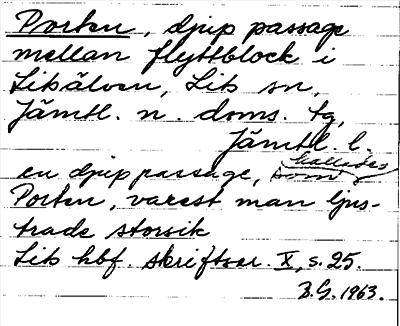 Porten, djup passage
mellan flyttblock i
Litsälven, Lits sn,
Jämtl. n. doms. tg,
Jämtl. l.
en djup passage, som kallades
Porten, varest man ljus-
trade storsik
Lits hbf. skriftser. X, s. 25.
B.G. 1963.